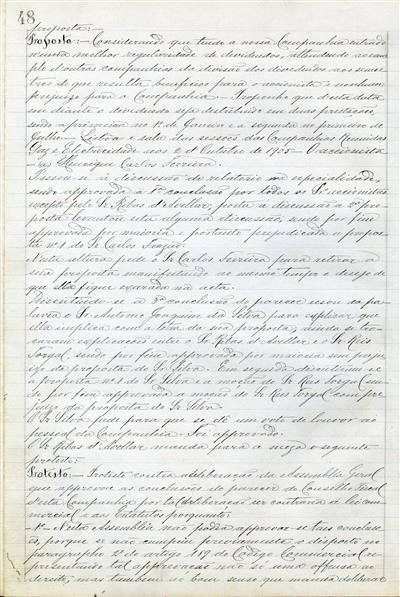 48
proposta:
Proposta:- Considerando que tendo a nossa Companhia entrado
n'uma melhor regularidade de dividendos, attendendo ao exem-
plo d'outras companhias da divisão dos dividendos aos semes-
tres de que resulta beneficio para o accionista e nenhum
prejuizo para a Companhia - Proponho que d'esta data
em diante o dividendo seja distribuido em duas prestações,
sendo a primeira no 1º de Janeiro e a segunda no primeiro de
Julho - Lisboa e sala das sessões das Companhias Reunidas
Gaz e Electricidade aos 2 d'Outubro de 1905 - O accionista
Henrique Carlos Ferreira.
Passou-se á discussão do relatorio na especialidade,
sendo approvada a 1ª conclusão por todos os Srs. accionistas
excepto pelo Sr. Ribas d'Avellar, posta á discussão a 2ª pro-
posta levantou esta alguma discussão, sendo por fim
approvada por maioria e portanto prejudicada a propos-
ta nº 1 do Sr. Carlos
N'esta altura pede o Sr. Carlos Ferreira para retirar a
sua proposta manifestando ao mesmo tempo o desejo de
que ella fique exarada na acta.
Discutindo-se a 3ª conclusão do parecer usou da pa-
lavra o Sr. Antonio Joaquim da Silva para explicar que
ella implica com a letra da sua proposta, ainda se tro-
caram explicações entre o Sr. Ribas d'Avellar e o Sr. Reis
Torgal, sendo por fim approvada por maioria sem preju-
izo da proposta do Sr. Silva. Em seguida discutiram-se
a proposta nº 1 do Sr. Silva e a moção do Sr. Reis Torgal sen-
do por fim approvada a moção do Sr. Reis Torgal com pre-
juizo da proposta do Sr. Silva.
O Sr. Silva pede para que se dê um voto de louvor ao
pessoal da Companhia. Foi approvado.
O Sr. Ribas d'Avellar manda para a meza o seguinte
protesto:
Protesto:- Protesto contra a deliberação da Assembléa Geral
que approvou as conclusões do parecer do Conselho Fiscal
d'esta Companhia por tal deliberação ser contraria á lei com-
mercial e aos Estatutos porquanto:
-1º- N'esta Assembléa não podia approvar-se taes conclusões
porque se não cumpriu previamente o disposto no
paragrapho 2º do artigo 189 do Codigo Commercial re-
presentando tal approvação não só uma offensa ao
direito, mas tambem ao bom senso que manda deliberar